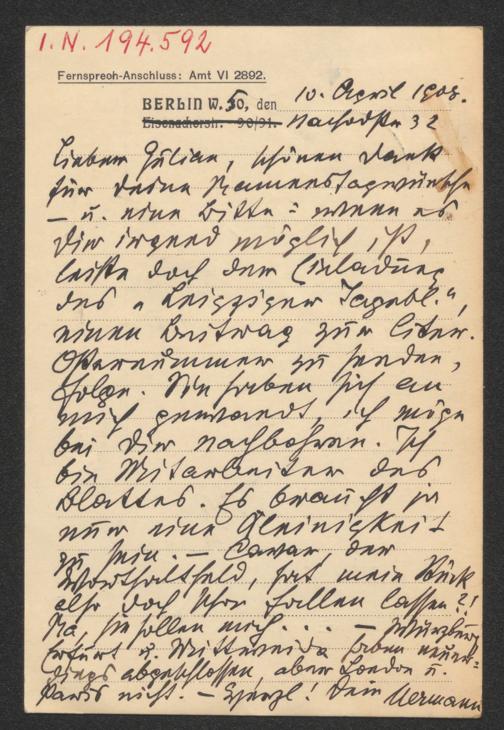 I.N. 194.592
Fernsprech-Anschluss: Amt VI 2892.
BERLIN W. 50, den 10. April 1908.
Eisenacherstr. 90/91. Nachodstr 32
Lieber Julian, schönen Dank
für deine Namenstagwünsche
– u. eine Bitte: wenn es
dir irgend möglich ist,
leiste doch der Einladung
des "Leipziger Tagebl.",
einen Beitrag zur liter.
Osternummer zu senden,
Folge. Sie haben sich an
mich gewandt, ich möge
bei dir nachbohren. Ich
bin Mitarbeiter des
Blattes. Es braucht ja
nur eine Kleinigkeit
zu sein. – der
hat mein Stück
also doch fallen lassen?!
Na, sie sollen mich . . . – Würzburg
Erfurt u. Mittweida haben neuer-
dings abgeschlossen, aber London u.
Paris nicht. – Herzl! Dein Hermann